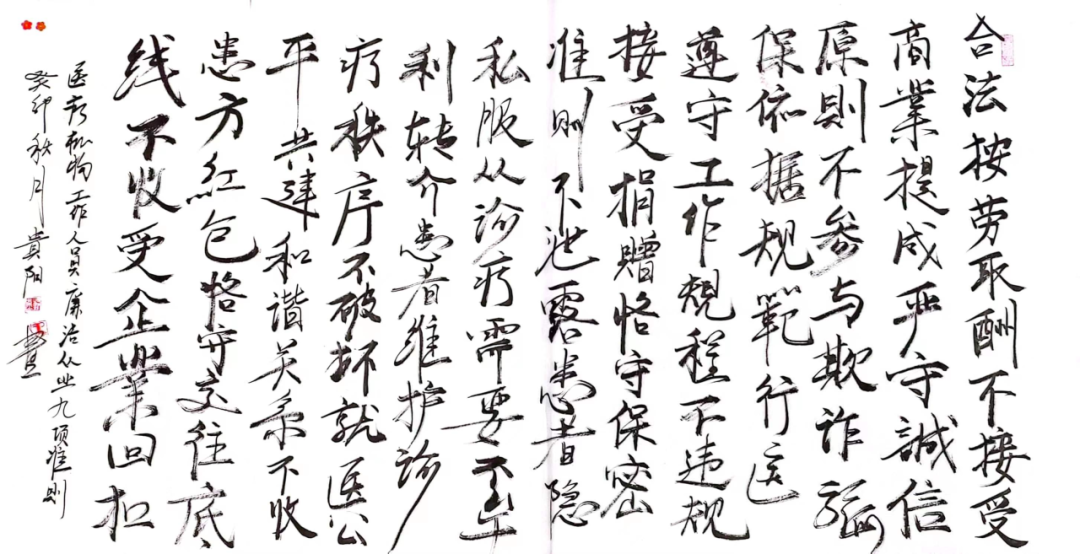 合法按劳取酬不接受
商業提成严守誠信
原則不参与欺诈骗
保依据规範行医
遵守工作規程不违规
接受捐赠恪守保密
准则不泄露患者隐
私服从诊疗需要不牟
利转介患者维护诊
疗秩序不破坏就医公
平共建和谐关系不收
患方紅包恪守交往底
线不收受企業回扣
医疗机构工作人员廉洁从业九项准则
癸卯秋月 貴阳